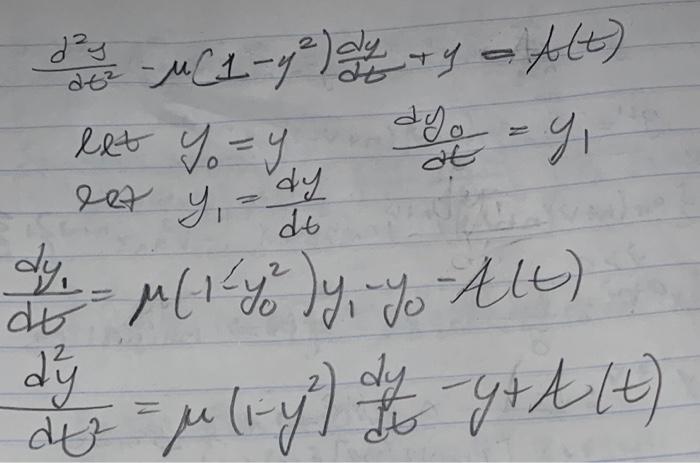 d²y/dt² - μ(1 - y²) dy/dt + y = A(t)
let y₀ = y    dy₀/dt = y₁
let y₁ = dy/dt
dy₁/dt = μ(1 - y₀²)y₁ - y₀ - A(t)
d²y/dt² = μ(1 - y²) dy/dt - y + A(t)